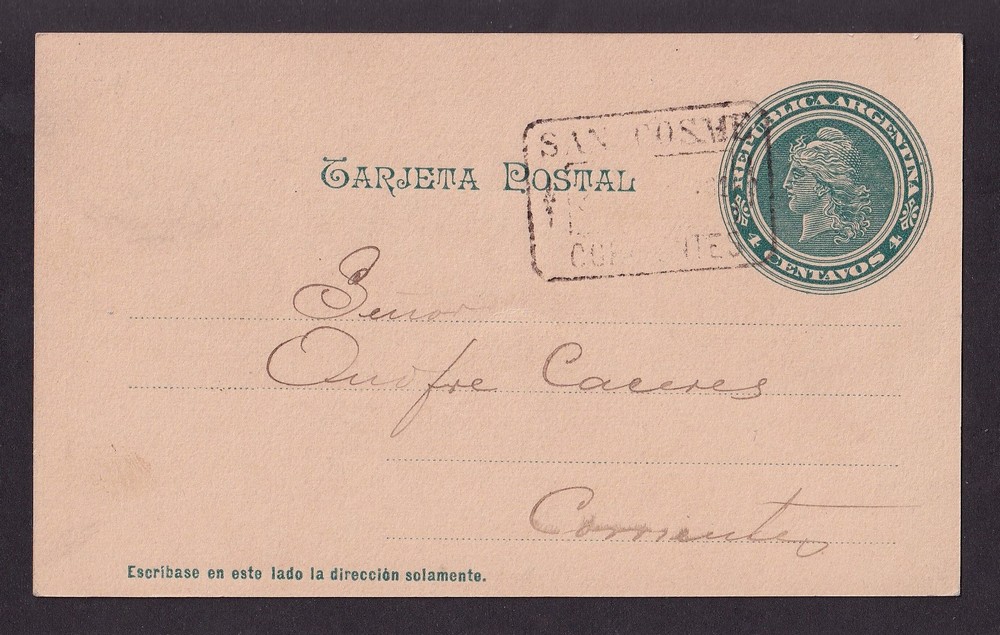 REPUBLICA ARGENTINA
4 CENTAVOS 4
SAN COSME
TARJETA POSTAL
Señor
Onofre Caceres
Corrientes
Escríbase en este lado la dirección solamente.